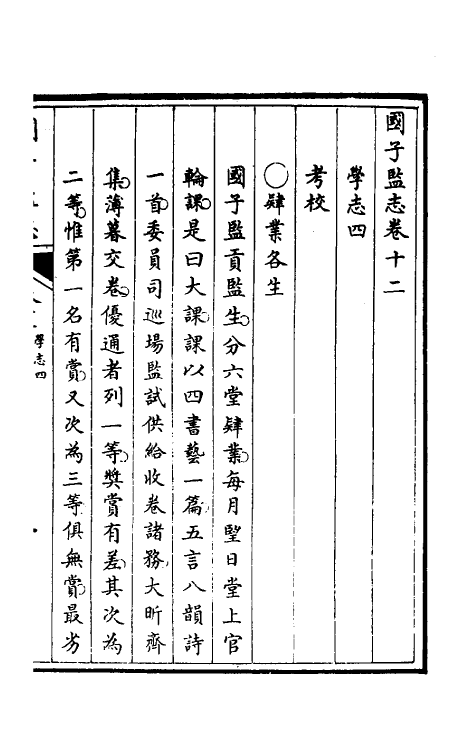 國子監志卷十二
學志四
考校
○肄業各生
國子監貢監生分六堂肄業每月朢日堂上官
輪課是曰大課課以四書藝一篇五言八韻詩
一首委員司巡場監試供給收卷諸務大昕齊
集薄暮交卷優通者列一等獎賞有差其次為
二等惟第一名有賞又次為三等俱無賞最劣
學志四